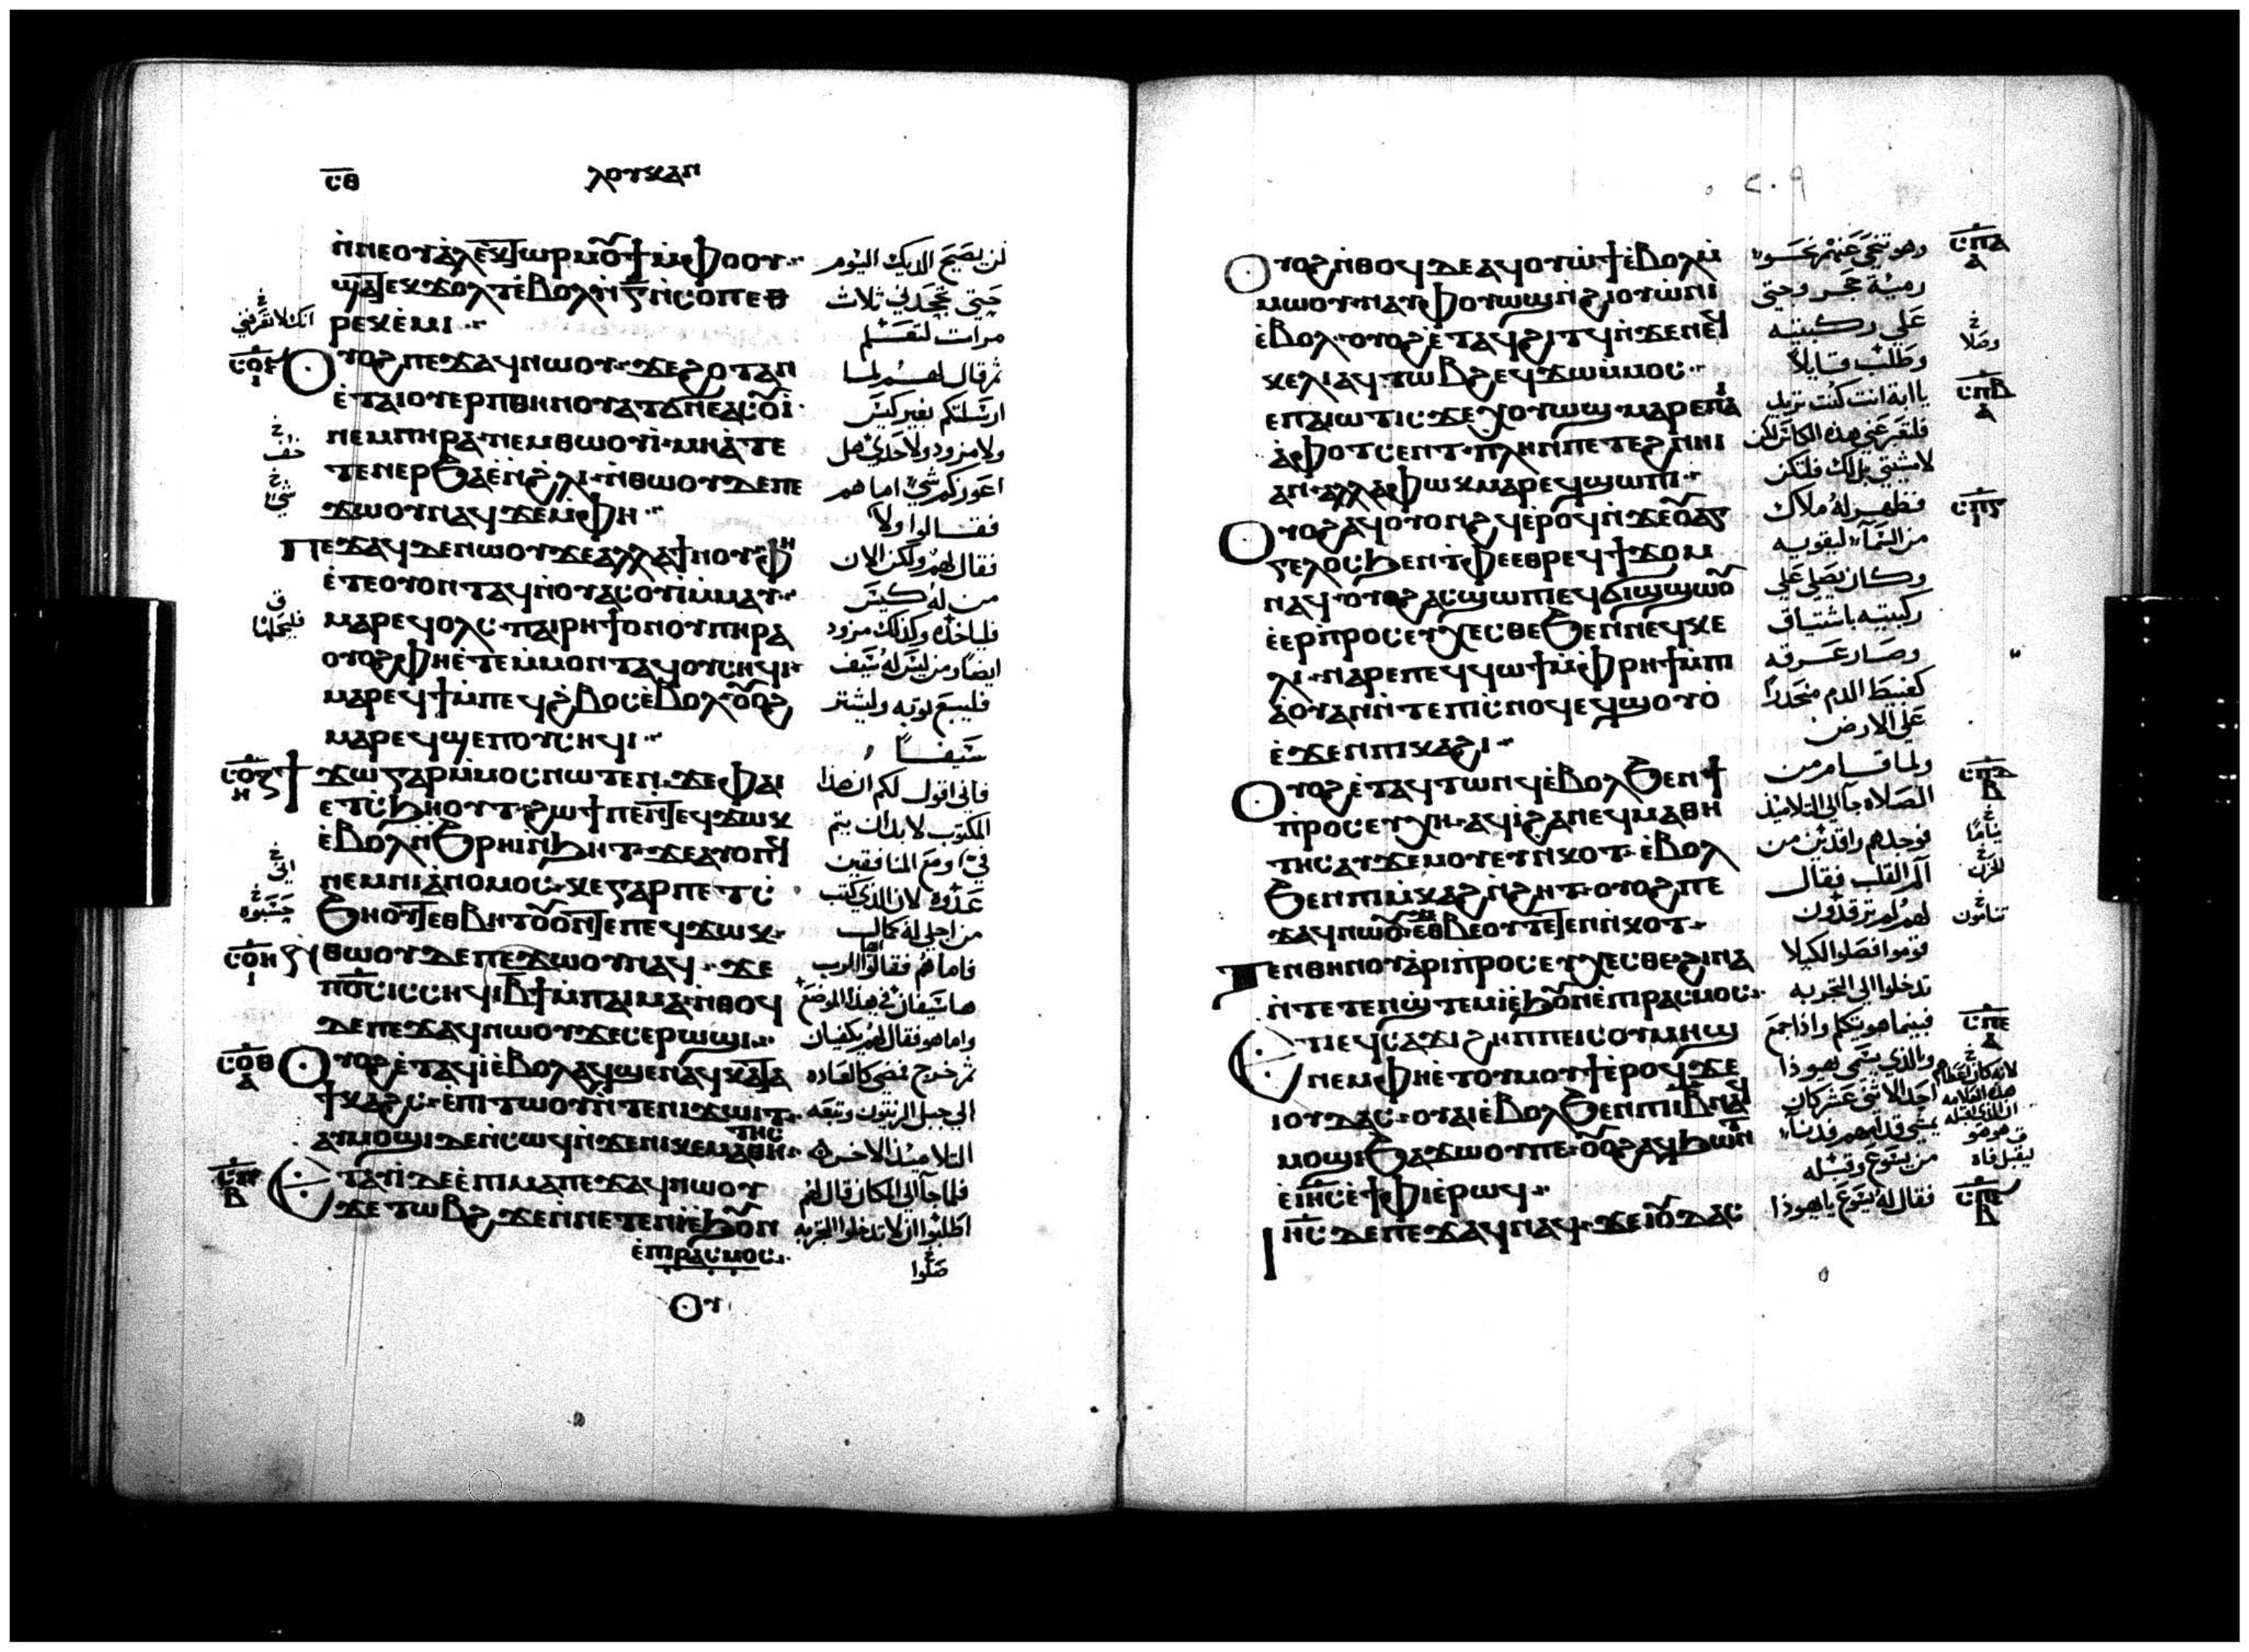 ⲥⲑ
ⲗⲟⲩⲕⲁⲛ
ⲛ̀ⲛⲉⲟⲩⲁ̀ⲗⲉⲕⲧⲱⲣ ⲙⲟⲩϯ ⲙ̀ⲫⲟⲟⲩ
ϣⲁⲧⲉⲕϫⲟⲗⲧ ⲉ̀ⲃⲟⲗ ⲛ̀ⲅ̄ ⲛ̀ⲥⲟⲡ ⲉⲑ
ⲣⲉⲕⲉ̀ⲙⲓ
ⲟⲩⲟϩ ⲡⲉϫⲁϥ ⲛⲱⲟⲩ ϫⲉ ϩⲟⲧⲁⲛ
ⲉ̀ⲧⲁⲓⲟⲩⲉⲣⲡ ⲑⲏⲛⲟⲩ ⲁⲧϭⲛⲉ ⲁⲥⲟⲩⲓ
ⲛⲉⲙ ⲡⲏⲣⲁ ⲛⲉⲙ ⲑⲱⲟⲩⲓ̀ ⲙⲏ ⲁ̀ⲧⲉ
ⲧⲉⲛⲉⲣϧⲁⲉ̀ ⲛ̀ϩⲗⲓ ⲛ̀ⲑⲱⲟⲩ ⲇⲉ ⲡⲉ
ϫⲱⲟⲩ ⲛⲁϥ ϫⲉ ⲙ̀ⲫⲏ
ⲡⲉϫⲁϥ ⲇⲉ ⲛⲱⲟⲩ ϫⲉ ⲁⲗⲗⲁ ϯⲛⲟⲩ ⲫⲏ
ⲉ̀ⲧⲉ ⲟⲩⲟⲛⲧⲁϥ ⲛ̀ⲟⲩⲁⲥⲟⲩⲓ̀ ⲙ̀ⲙⲁⲩ
ⲙⲁⲣⲉϥⲟⲗⲥ ⲡⲁⲓⲣⲏϯ ⲟⲛ ⲟⲩⲡⲏⲣⲁ
ⲟⲩⲟϩ ⲫⲏ ⲉ̀ⲧⲉ ⲙ̀ⲙⲟⲛⲧⲁϥ ⲟⲩⲥⲏϥⲓ
ⲙⲁⲣⲉϥϯ ⲙ̀ⲡⲉϥϩ̀ⲃⲟⲥ ⲉ̀ⲃⲟⲗ ⲟⲩⲟϩ
ⲙⲁⲣⲉϥϣⲉⲡ ⲟⲩⲥⲏϥⲓ
ϯϫⲱ ⲅⲁⲣ ⲙ̀ⲙⲟⲥ ⲛⲱⲧⲉⲛ ϫⲉ ⲫⲁⲓ
ⲉⲧⲥ̀ϧⲏⲟⲩⲧ ϩⲱϯ ⲡⲉ ⲛ̀ⲧⲉϥϫⲱⲕ
ⲉ̀ⲃⲟⲗ ⲛ̀ϧⲣⲏⲓ ⲛ̀ϧⲏⲧ ϫⲉ ⲁⲩⲟⲡϥ
ⲛⲉⲙ ⲛⲓⲁ̀ⲛⲟⲙⲟⲥ ⲕⲉ ⲅⲁⲣ ⲡⲉⲧⲥ̀
ϧⲏⲟⲩⲧ ⲉⲑⲃⲏⲧ ⲟⲩⲟⲛⲧⲉ ⲡⲉϥϫⲱⲕ
ⲛ̀ⲑⲱⲟⲩ ⲇⲉ ⲡⲉϫⲱⲟⲩ ⲛⲁϥ ϫⲉ
ⲡⲟ̅ⲥ̅ ⲓⲥ ⲥⲏϥⲓ ⲃ̅ϯ ⲙ̀ⲡⲁⲓⲙⲁ ⲛ̀ⲑⲟϥ
ⲇⲉ ⲡⲉϫⲁϥ ⲛⲱⲟⲩ ϫⲉ ⲥⲉⲣⲱϣⲓ
ⲟⲩⲟϩ ⲉ̀ⲧⲁϥⲓ̀ ⲉ̀ⲃⲟⲗ ⲁϥϣⲉⲛⲁϥ ⲕⲁⲧⲁ
ϯⲕⲁϩⲥ ⲉ̀ⲡⲓⲧⲱⲟⲩ ⲛ̀ⲧⲉ ⲛⲓϫⲱⲓⲧ
ⲁⲩⲙⲟϣⲓ ⲇⲉ ⲛ̀ⲥⲱϥ ⲛ̀ϫⲉ ⲛⲓⲕⲉⲙⲁⲑⲏⲧⲏⲥ
ⲉⲧⲁϥⲓ̀ ⲇⲉ ⲉ̀ⲡⲓⲙⲁ ⲡⲉϫⲁϥ ⲛⲱⲟⲩ
ϫⲉ ⲧⲱⲃϩ ϫⲉ ⲛⲛⲉⲧⲉⲛⲓ̀ ⲉ̀ϧⲟⲩⲛ
ⲉ̀ⲡⲓⲣⲁⲥⲙⲟⲥ
ⲟⲩ
لن يصيح الديك اليوم
حتى تجحدني ثلاث
مرات لتعلم
ثم قال لهم لما
ارسلتكم بغير كيس
ولا مزود ولا حذي هل
اعوزكم شي اما هم
فقالوا ولا
فقال لهم ولكن الان
من له كيس
فلياخذه وكذلك مزود
ايضا ومن ليس له سيف
فليبع ثوبه وليشتر
سيفا
فاني اقول لكم ان هذا
المكتوب لابد ان يتم
في ومع المنافقين
عدوه لان الذي كتب
من اجلي له كمال
فاما هم فقالوا يارب
ها سيفان في هذا الموضع
واما هو فقال لهم يكفيان
ثم خرج فمضى كالعاده
الى جبل الزيتون وتبعه
التلاميذ الاخر
فلما جا الى المكان قال لهم
اطلبوا ان لا تدخلوا التجربه
صلوا
ⲥⲟⲍ
ⲥⲟⲏ
ⲥⲟⲑ
ⲥⲡ
٢٠٩
ⲟⲩⲟϩ ⲛ̀ⲑⲟϥ ⲇⲉ ⲁϥⲟⲩⲱ̀ϯ ⲉ̀ⲃⲟⲗ ⲙ̀
ⲙⲱⲟⲩ ⲛⲁⲩ ⲫⲟⲩⲱϣ ⲛ̀ϩⲓⲟⲩⲱ̀ⲛⲓ
ⲉ̀ⲃⲟⲗ ⲟⲩⲟϩ ⲉ̀ⲧⲁϥϩⲓⲧϥ ⲛ̀ϫⲉⲛ ⲛⲉϥ
ⲕⲉⲗⲓ ⲁϥⲧⲱⲃϩ ⲉϥϫⲱ ⲙ̀ⲙⲟⲥ
ⲉⲡⲁⲓⲱⲧ ⲓⲥϫⲉ ⲭⲟⲩⲱϣ ⲙⲁⲣⲉ ⲡⲁⲓ
ⲁ̀ⲫⲟⲧ ⲥⲉⲛⲧ ⲡⲗⲏⲛ ⲡⲉⲧⲉϩⲛⲏⲓ
ⲁⲛ ⲁⲗⲗⲁ ⲫⲱⲕ ⲙⲁⲣⲉϥϣⲱⲡⲓ
ⲟⲩⲟϩ ⲁϥⲟⲩⲟⲛϩϥ ⲉ̀ⲣⲟϥ ⲛ̀ϫⲉ ⲟⲩⲁⲅ
ⲅⲉⲗⲟⲥ ϧⲉⲛ ⲧ̀ⲫⲉ ⲉⲑⲣⲉϥϯϫⲟⲙ
ⲛⲁϥ ⲟⲩⲟϩ ⲁⲥϣⲱⲡⲓ ⲉϥϭⲓϣϣⲱⲟⲩ
ⲉ̀ⲉⲣⲡ̀ⲣⲟⲥⲉⲩⲭⲉⲥⲑⲉ ϧⲉⲛ ⲛⲉϥⲕⲉ
ⲗⲓ ⲛⲁⲣⲉ ⲡⲉϥϥⲱϯ ⲙ̀ⲫⲣⲏϯ ⲙ̀ⲡⲓ
ⲁ̀ⲟⲩⲁⲛ ⲛ̀ⲧⲉ ⲡⲓⲥ̀ⲛⲟϥ ⲉϥϣⲟⲩⲟ̀
ⲉ̀ϫⲉⲛ ⲡⲓⲕⲁϩⲓ
ⲟⲩⲟϩ ⲉ̀ⲧⲁϥⲧⲱⲛϥ ⲉ̀ⲃⲟⲗ ϧⲉⲛ ϯ
ⲡ̀ⲣⲟⲥⲉⲩⲭⲏ ⲁϥⲓ̀ ϩⲁ ⲛⲉϥⲙⲁⲑⲏ
ⲧⲏⲥ ⲁϥϫⲉⲙⲟⲩ ⲉⲩⲉⲛⲕⲟⲧ ⲉ̀ⲃⲟⲗ
ϧⲉⲛ ⲡⲓⲙ̀ⲕⲁϩ ⲛ̀ϩⲏⲧ ⲟⲩⲟϩ ⲡⲉ
ϫⲁϥ ⲛⲱⲟⲩ ⲉⲑⲃⲉⲟⲩ ⲧⲉⲧⲉⲛⲛ̀ⲕⲟⲧ
ⲧⲉⲛ ⲑⲏⲛⲟⲩ ⲁ̀ⲣⲓⲡ̀ⲣⲟⲥⲉⲩⲭⲉⲥⲑⲉ ϩⲓⲛⲁ
ⲛ̀ⲧⲉⲧⲉⲛϣ̀ⲧⲉⲙⲓ̀ ⲉ̀ϧⲟⲩⲛ ⲉ̀ⲡⲓⲣⲁⲥⲙⲟⲥ
ⲉⲧⲓ ⲉϥⲥⲁϫⲓ ϩⲏⲡⲡⲉ ⲓⲥ ⲟⲩⲙⲏϣ
ⲛⲉⲙ ⲫⲏ ⲉ̀ⲧⲟⲩⲙⲟⲩϯ ⲉ̀ⲣⲟϥ ϫⲉ
ⲓⲟⲩⲇⲁⲥ ⲟⲩⲁⲓ ⲉ̀ⲃⲟⲗ ϧⲉⲛ ⲡⲓⲃ̅ ⲛⲁϥ
ⲙⲟϣⲓ ϧⲁϫⲱⲟⲩ ⲡⲉ ⲟⲩⲟϩ ⲁϥϧⲱⲛⲧ
ⲉ̀ⲓⲏ̅ⲥ̅ ⲉ̀ϯⲫⲓ ⲉ̀ⲣⲱϥ
ⲓⲏ̅ⲥ̅ ⲇⲉ ⲡⲉϫⲁϥ ⲛⲁϥ ϫⲉ ⲓⲟⲩⲇⲁⲥ
وهو تنحى عنهم نحو
رمية حجر وجثى
على ركبتيه
وطلب قايلا
يا ابه ان كنت تريد
فلتعبر عني هذه الكاس لكن
لا مشيتي بل لك فلتكن
فظهر له ملاك
من السما ليقويه
وكان يصلي على
ركبتيه باشتياق
وصار عرقه
كعبيط الدم منحدرا
على الارض
ولما قام من
الصلاه جا الى التلاميذ
فوجدهم راقدين من
الم القلب فقال
لهم لم ترقدون
قوموا فصلوا لكيلا
تدخلوا الى التجربه
فبينما هو يتكلم واذا جمع
والذي يسمى يهوذا
احد الاثني عشر كان
يمشي قدامهم فدنا
من يسوع وقبله
فقال له يسوع يا يهوذا
ⲥⲡⲁ
ⲥⲡⲃ
ⲥⲡⲅ
ⲥⲡⲇ
ⲥⲡⲉ